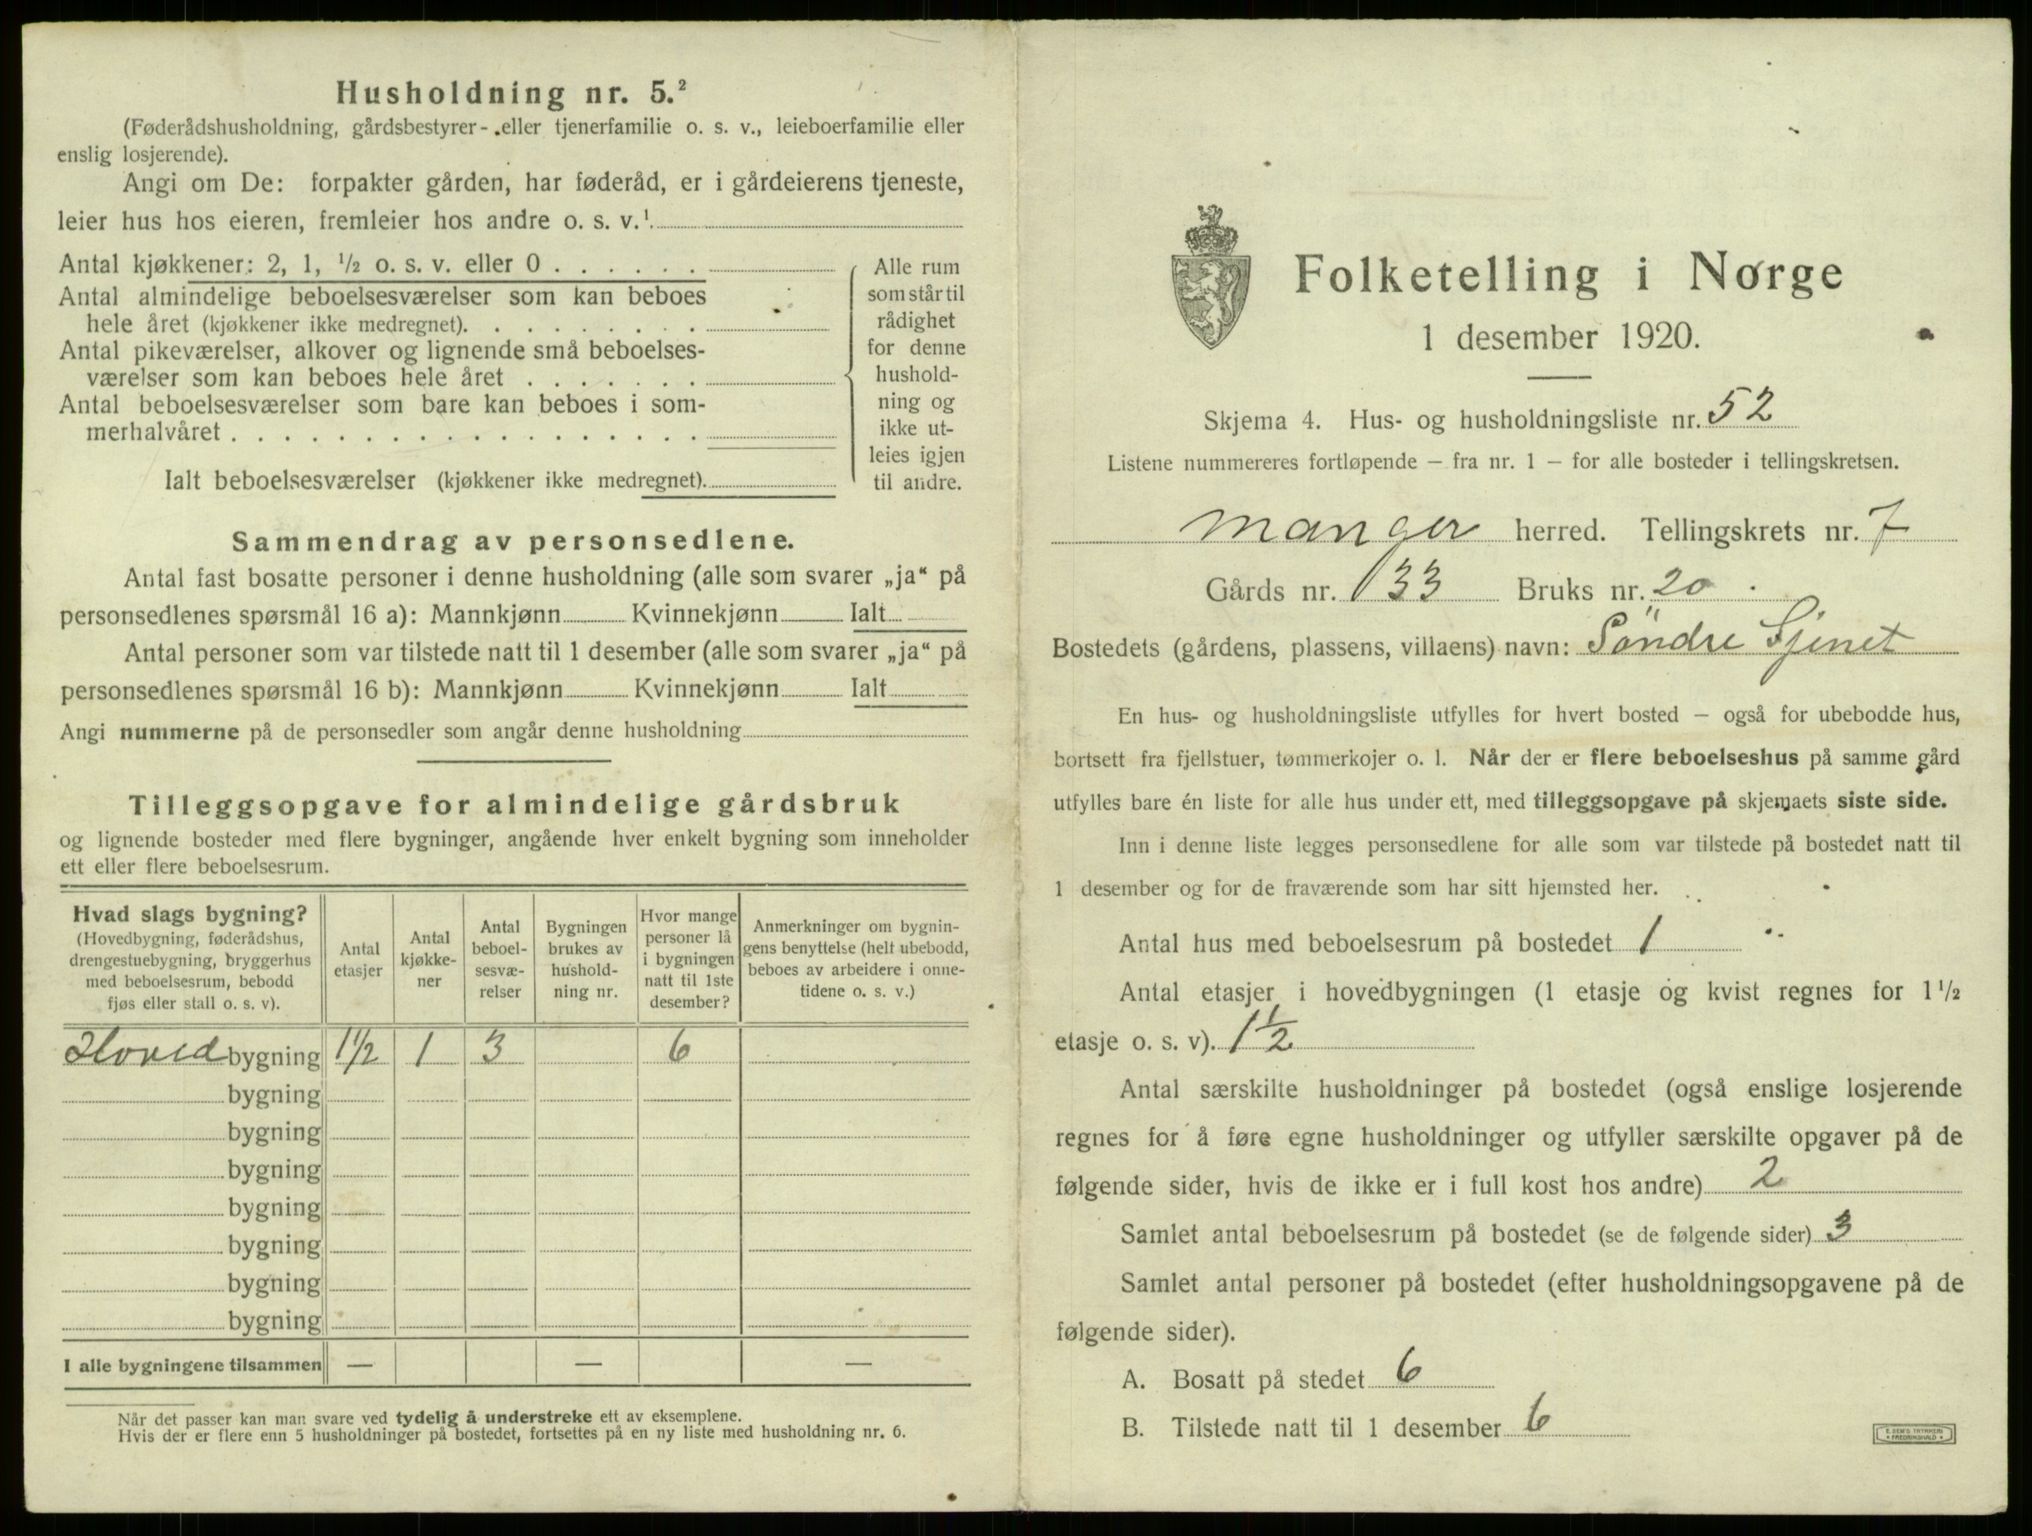 Husholdning nr. 5.²
(Føderådshusholdning, gårdsbestyrer- eller tjenerfamilie o. s. v., leieboerfamilie eller
enslig losjerende).
Angi om De: forpakter gården, har føderåd, er i gårdeierens tjeneste,
leier hus hos eieren, fremleier hos andre o. s. v.¹
Antal kjøkkener: 2, 1, ½ o. s. v. eller 0
Antal almindelige beboelsesværelser som kan beboes
hele året (kjøkkener ikke medregnet).
Antal pikeværelser, alkover og lignende små beboelses-
værelser som kan beboes hele året
Antal beboelsesværelser som bare kan beboes i som-
merhalvåret
Ialt beboelsesværelser (kjøkkener ikke medregnet).
Alle rum
som står til
rådighet
for denne
hushold-
ning og
ikke ut-
leies igjen
til andre.
Sammendrag av personsedlene.
Antal fast bosatte personer i denne husholdning (alle som svarer „ja“ på
personsedlenes spørsmål 16 a): Mannkjønn Kvinnekjønn Ialt
Antal personer som var tilstede natt til 1 desember (alle som svarer „ja“ på
personsedlenes spørsmål 16 b): Mannkjønn Kvinnekjønn Ialt
Angi nummerne på de personsedler som angår denne husholdning
Tilleggsopgave for almindelige gårdsbruk
og lignende bosteder med flere bygninger, angående hver enkelt bygning som inneholder
ett eller flere beboelsesrum.
Hvad slags bygning?
(Hovedbygning, føderådshus,
drengestuebygning, bryggerhus
med beboelsesrum, bebodd
fjøs eller stall o. s. v).
Antal
etasjer
Antal
kjøkke-
ner
Antal
beboel-
sesvæ-
relser
Bygningen
brukes av
hushold-
ning nr.
Hvor mange
personer lå
i bygningen
natt til 1ste
desember?
Anmerkninger om bygnin-
gens benyttelse (helt ubebodd,
beboes av arbeidere i onne-
tidene o. s. v.)
Hoved bygning 1½ 1 3 6
bygning
bygning
bygning
bygning
bygning
bygning
bygning
I alle bygningene tilsammen — — —
Når det passer kan man svare ved tydelig å understreke ett av eksemplene.
Hvis der er flere enn 5 husholdninger på bostedet, fortsettes på en ny liste med husholdning nr. 6.
Folketelling i Norge
1 desember 1920.
Skjema 4. Hus- og husholdningsliste nr. 52
Listene nummereres fortløpende — fra nr. 1 — for alle bosteder i tellingskretsen.
Manger herred. Tellingskrets nr. 7
Gårds nr. 133 Bruks nr. 20
Bostedets (gårdens, plassens, villaens) navn: Söndre Gjenet
En hus- og husholdningsliste utfylles for hvert bosted — også for ubebodde hus,
bortsett fra fjellstuer, tømmerkojer o. l. Når der er flere beboelseshus på samme gård
utfylles bare én liste for alle hus under ett, med tilleggsopgave på skjemaets siste side.
Inn i denne liste legges personsedlene for alle som var tilstede på bostedet natt til
1 desember og for de fraværende som har sitt hjemsted her.
Antal hus med beboelsesrum på bostedet 1
Antal etasjer i hovedbygningen (1 etasje og kvist regnes for 1½
etasje o. s. v). 1½
Antal særskilte husholdninger på bostedet (også enslige losjerende
regnes for å føre egne husholdninger og utfyller særskilte opgaver på de
følgende sider, hvis de ikke er i full kost hos andre) 2
Samlet antal beboelsesrum på bostedet (se de følgende sider) 3
Samlet antal personer på bostedet (efter husholdningsopgavene på de
følgende sider).
A. Bosatt på stedet 6
B. Tilstede natt til 1 desember 6